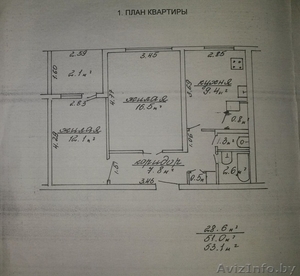 1. ПЛАН КВАРТИРЫ
2.59
3.45
2.85
1.60
2.1 м²
4.77
кухня
9.4 м²
3.59
2.83
жилая
16.5 м²
0.8 м²
4.28
жилая
12.1 м²
1.8 м²
1.51
коридор
7.8 м²
2.6 м²
3.46
0.5 м²
28.6 м²
51.0 м²
53.1 м²
AvizInfo.by